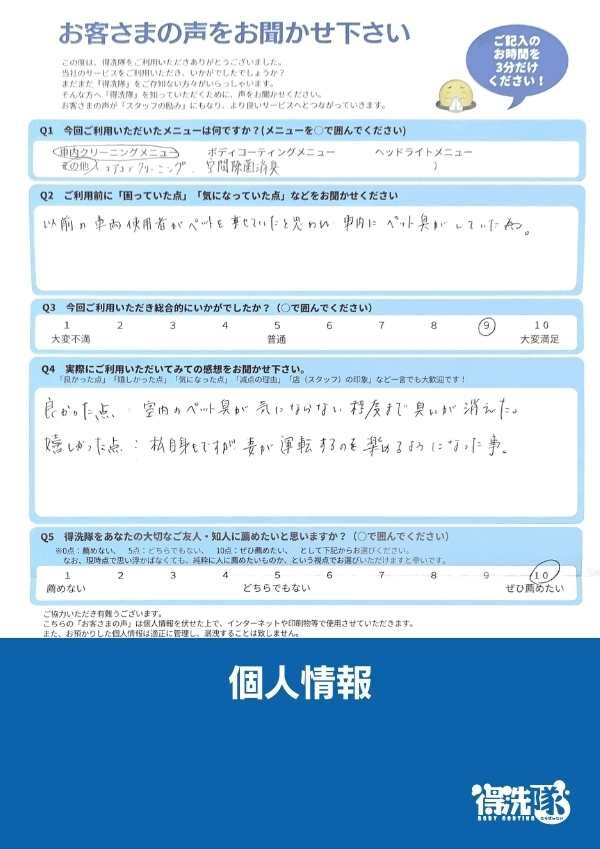 お客さまの声をお聞かせ下さい
この度は、得洗隊をご利用いただきありがとうございました。
当社のサービスをご利用いただき、いかがでしたでしょうか？
まだまだ「得洗隊」をご存知ない方々がいらっしゃいます。
そんな方へ「得洗隊」を知っていただくために、声をお聞かせください。
お客さまの声が「スタッフの励み」にもなり、より良いサービスへとつながっていきます。
ご記入の
お時間を
3分だけ
ください！
Q1 今回ご利用いただいたメニューは何ですか？(メニューを〇で囲んでください)
車内クリーニングメニュー ボディコーティングメニュー ヘッドライトメニュー
その他（エアコンクリーニング、空間除菌消臭 ）
Q2 ご利用前に「困っていた点」「気になっていた点」などをお聞かせください
以前の車両使用者がペットを乗せていたと思われ 車内にペット臭がしていた為。
Q3 今回ご利用いただき総合的にいかがでしたか？（〇で囲んでください）
1 2 3 4 5 6 7 8 9 10
大変不満 普通 大変満足
Q4 実際にご利用いただいてみての感想をお聞かせ下さい。
「良かった点」「嬉しかった点」「気になった点」「減点の理由」「店（スタッフ）の印象」など一言でも大歓迎です！
良かった点：室内のペット臭が気にならない程度まで臭いが消えた。
嬉しかった点：私自身もですが妻が運転するのを楽しめるようになった事。
Q5 得洗隊をあなたの大切なご友人・知人に薦めたいと思いますか？（〇で囲んでください）
※0点：薦めない、 5点：どちらでもない、 10点：ぜひ薦めたい、 として下記からお選びください。
なお、現時点で思い浮かばなくても、純粋に人に薦めたいものか、という視点でお選びいただけますと幸いです。
1 2 3 4 5 6 7 8 9 10
薦めない どちらでもない ぜひ薦めたい
ご協力いただき有難うございます。
こちらの「お客さまの声」は個人情報を伏せた上で、インターネットや印刷物等で使用させていただきます。
また、お預かりした個人情報は適正に管理し、漏洩することは致しません。
個人情報
得洗隊